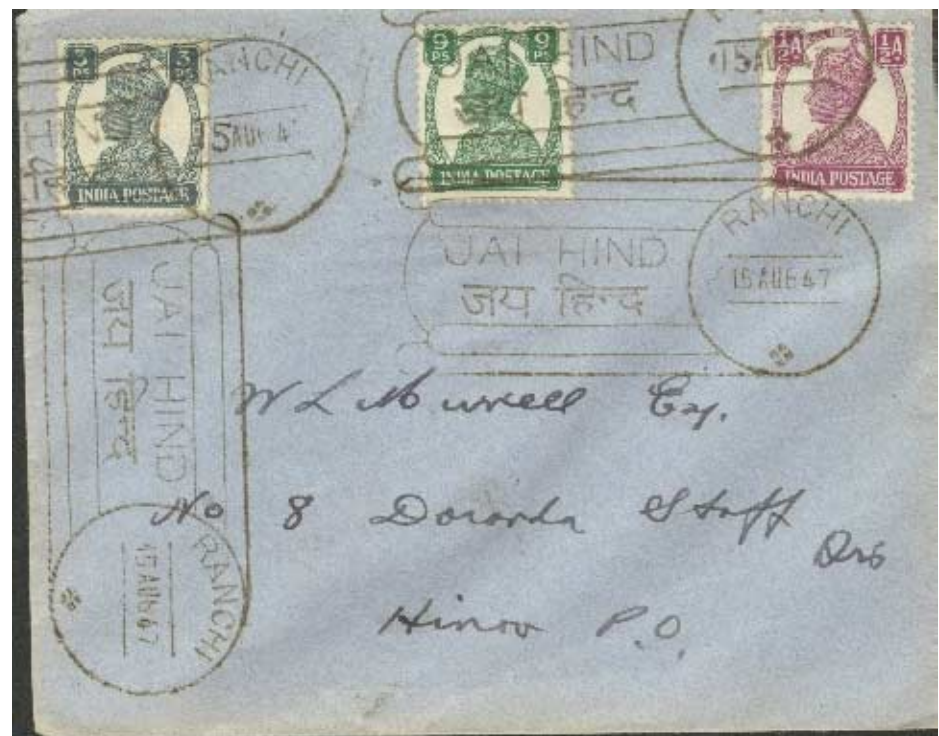 3 PS 3 PS
INDIA POSTAGE
RANCHI
15 AUG 47
9 PS 9 PS
INDIA POSTAGE
JAI HIND
हिन्द
15 AUG
½A ½A
INDIA POSTAGE
JAI HIND
जय हिन्द
RANCHI
15 AUG 47
JAI HIND
जय हिन्द
RANCHI
15 AUG 47
W L Murrell Esq.
No 8 Doranda Staff
Qrs
Hinoo P.O.